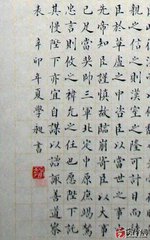 親之信之則漢室之隆可計日而
臣於草廬之中咨臣以當世之事
先帝知臣謹慎故臨崩寄臣以大事
已足當獎帥三軍北定中原庶竭駑
忠言則攸之禕允之任也願陛下託
其慢陛下亦宜自謀以諮諏善道察
表 辛卯年夏學昶書